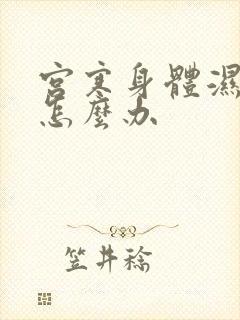 宮寒身體濕
怎麼办
笠井稔